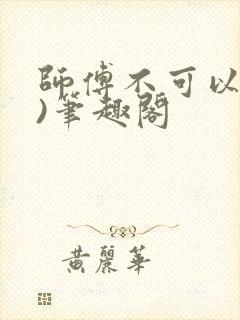 師傅不可以
)筆趣閣
黃麗華